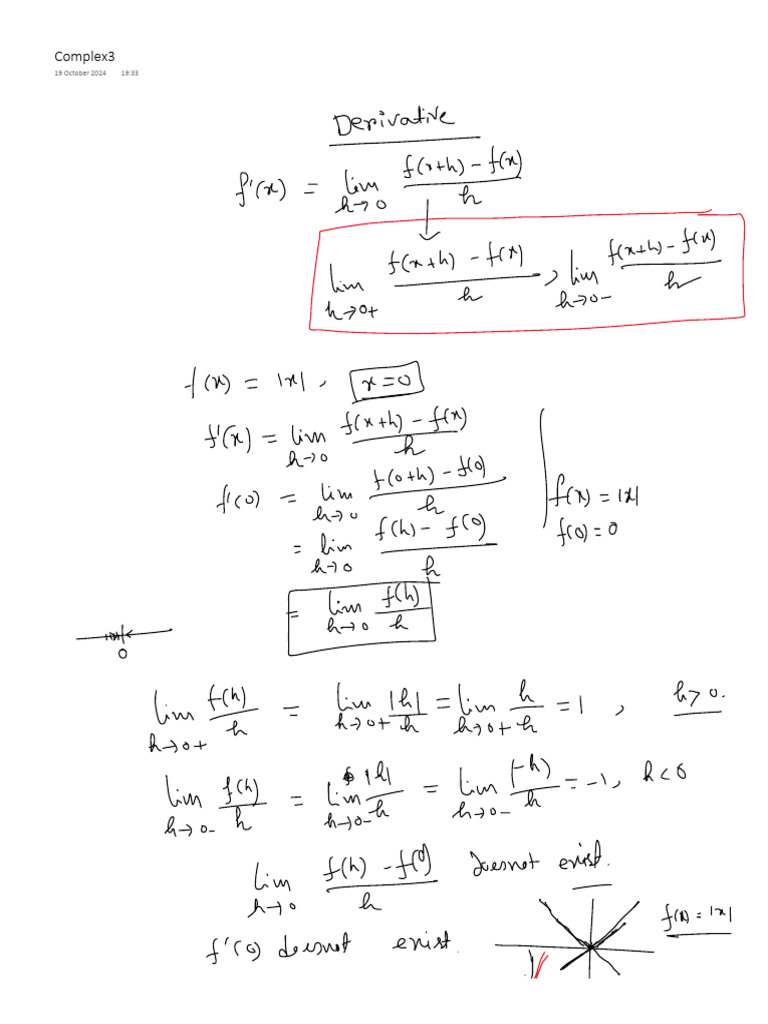 Complex3
19 October 2024 19:33
Derivative
f'(x) = lim h→0 (f(x+h) - f(x))/h
lim h→0+ (f(x+h) - f(x))/h , lim h→0- (f(x+h) - f(x))/h
f(x) = |x| , x=0
f'(x) = lim h→0 (f(x+h) - f(x))/h
f'(0) = lim h→0 (f(0+h) - f(0))/h
f(x) = |x|
f(0) = 0
= lim h→0 (f(h) - f(0))/h
= lim h→0 f(h)/h
0
lim h→0+ f(h)/h = lim h→0+ |h|/h = lim h→0+ h/h = 1 , h>0.
lim h→0- f(h)/h = lim h→0- |h|/h = lim h→0- (-h)/h = -1, h<0
lim h→0 (f(h) - f(0))/h doesnot exist.
f(x) = |x|
f'(0) doesnot exist.